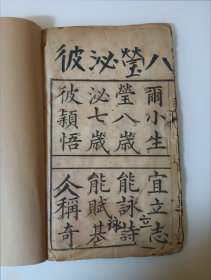 八瑩泌彼
爾小生
宜立志
瑩八歲
能詠詩
泌七歲
能賦基
彼穎悟
人稱奇
立
詠